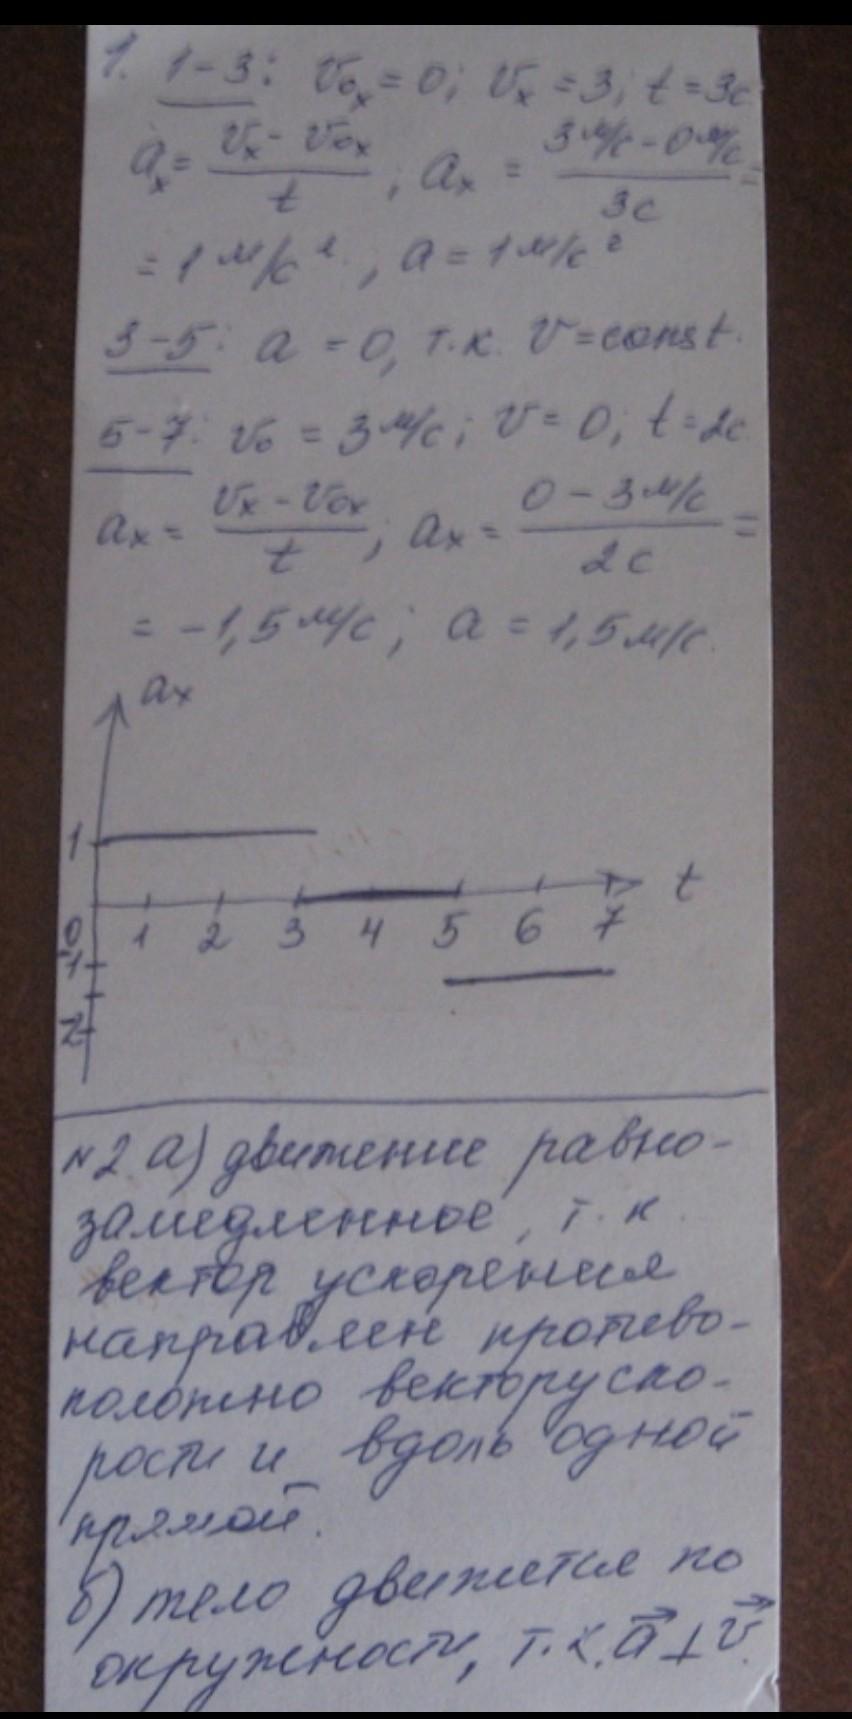 1. 1-3: v₀ₓ = 0; vₓ = 3; t = 3с
aₓ = (vₓ - v₀ₓ)/t ; aₓ = (3 м/с - 0 м/с)/3с =
= 1 м/с². , a = 1 м/с²
3-5: a = 0, т.к. v = const.
5-7: v₀ = 3 м/с; v = 0; t = 2с
aₓ = (vₓ - v₀ₓ)/t ; aₓ = (0 - 3 м/с)/2с =
= -1,5 м/с; a = 1,5 м/с.
aₓ
1
t
0 1 2 3 4 5 6 7
-1
-2
№2 а) движение равно-
замедленное, т.к
вектор ускорения
направлен противо-
положно вектору ско-
рости и вдоль одной
прямой.
б) тело движется по
окружности, т.к. a⃗ ⊥ v⃗.